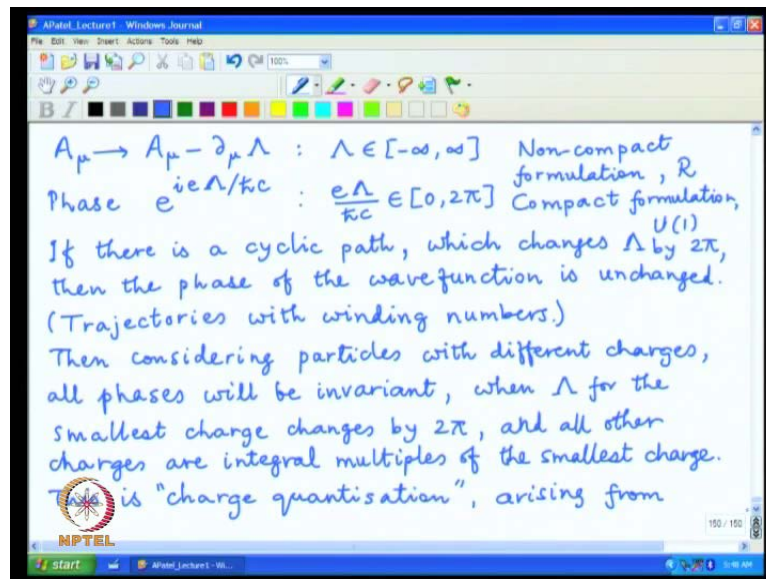 APatel_Lecture1 - Windows Journal
File Edit View Insert Actions Tools Help
100%
B I
Aμ → Aμ - ∂μ Λ : Λ ∈ [-∞, ∞] Non-compact
formulation, R
Phase e^{ieΛ/ħc} : eΛ/ħc ∈ [0, 2π] Compact formulation,
U(1)
If there is a cyclic path, which changes Λ by 2π,
then the phase of the wavefunction is unchanged.
(Trajectories with winding numbers.)
Then considering particles with different charges,
all phases will be invariant, when Λ for the
smallest charge changes by 2π, and all other
charges are integral multiples of the smallest charge.
This is "charge quantisation", arising from
NPTEL
150 / 150
start APatel_Lecture1 - Wi... 5:48 AM